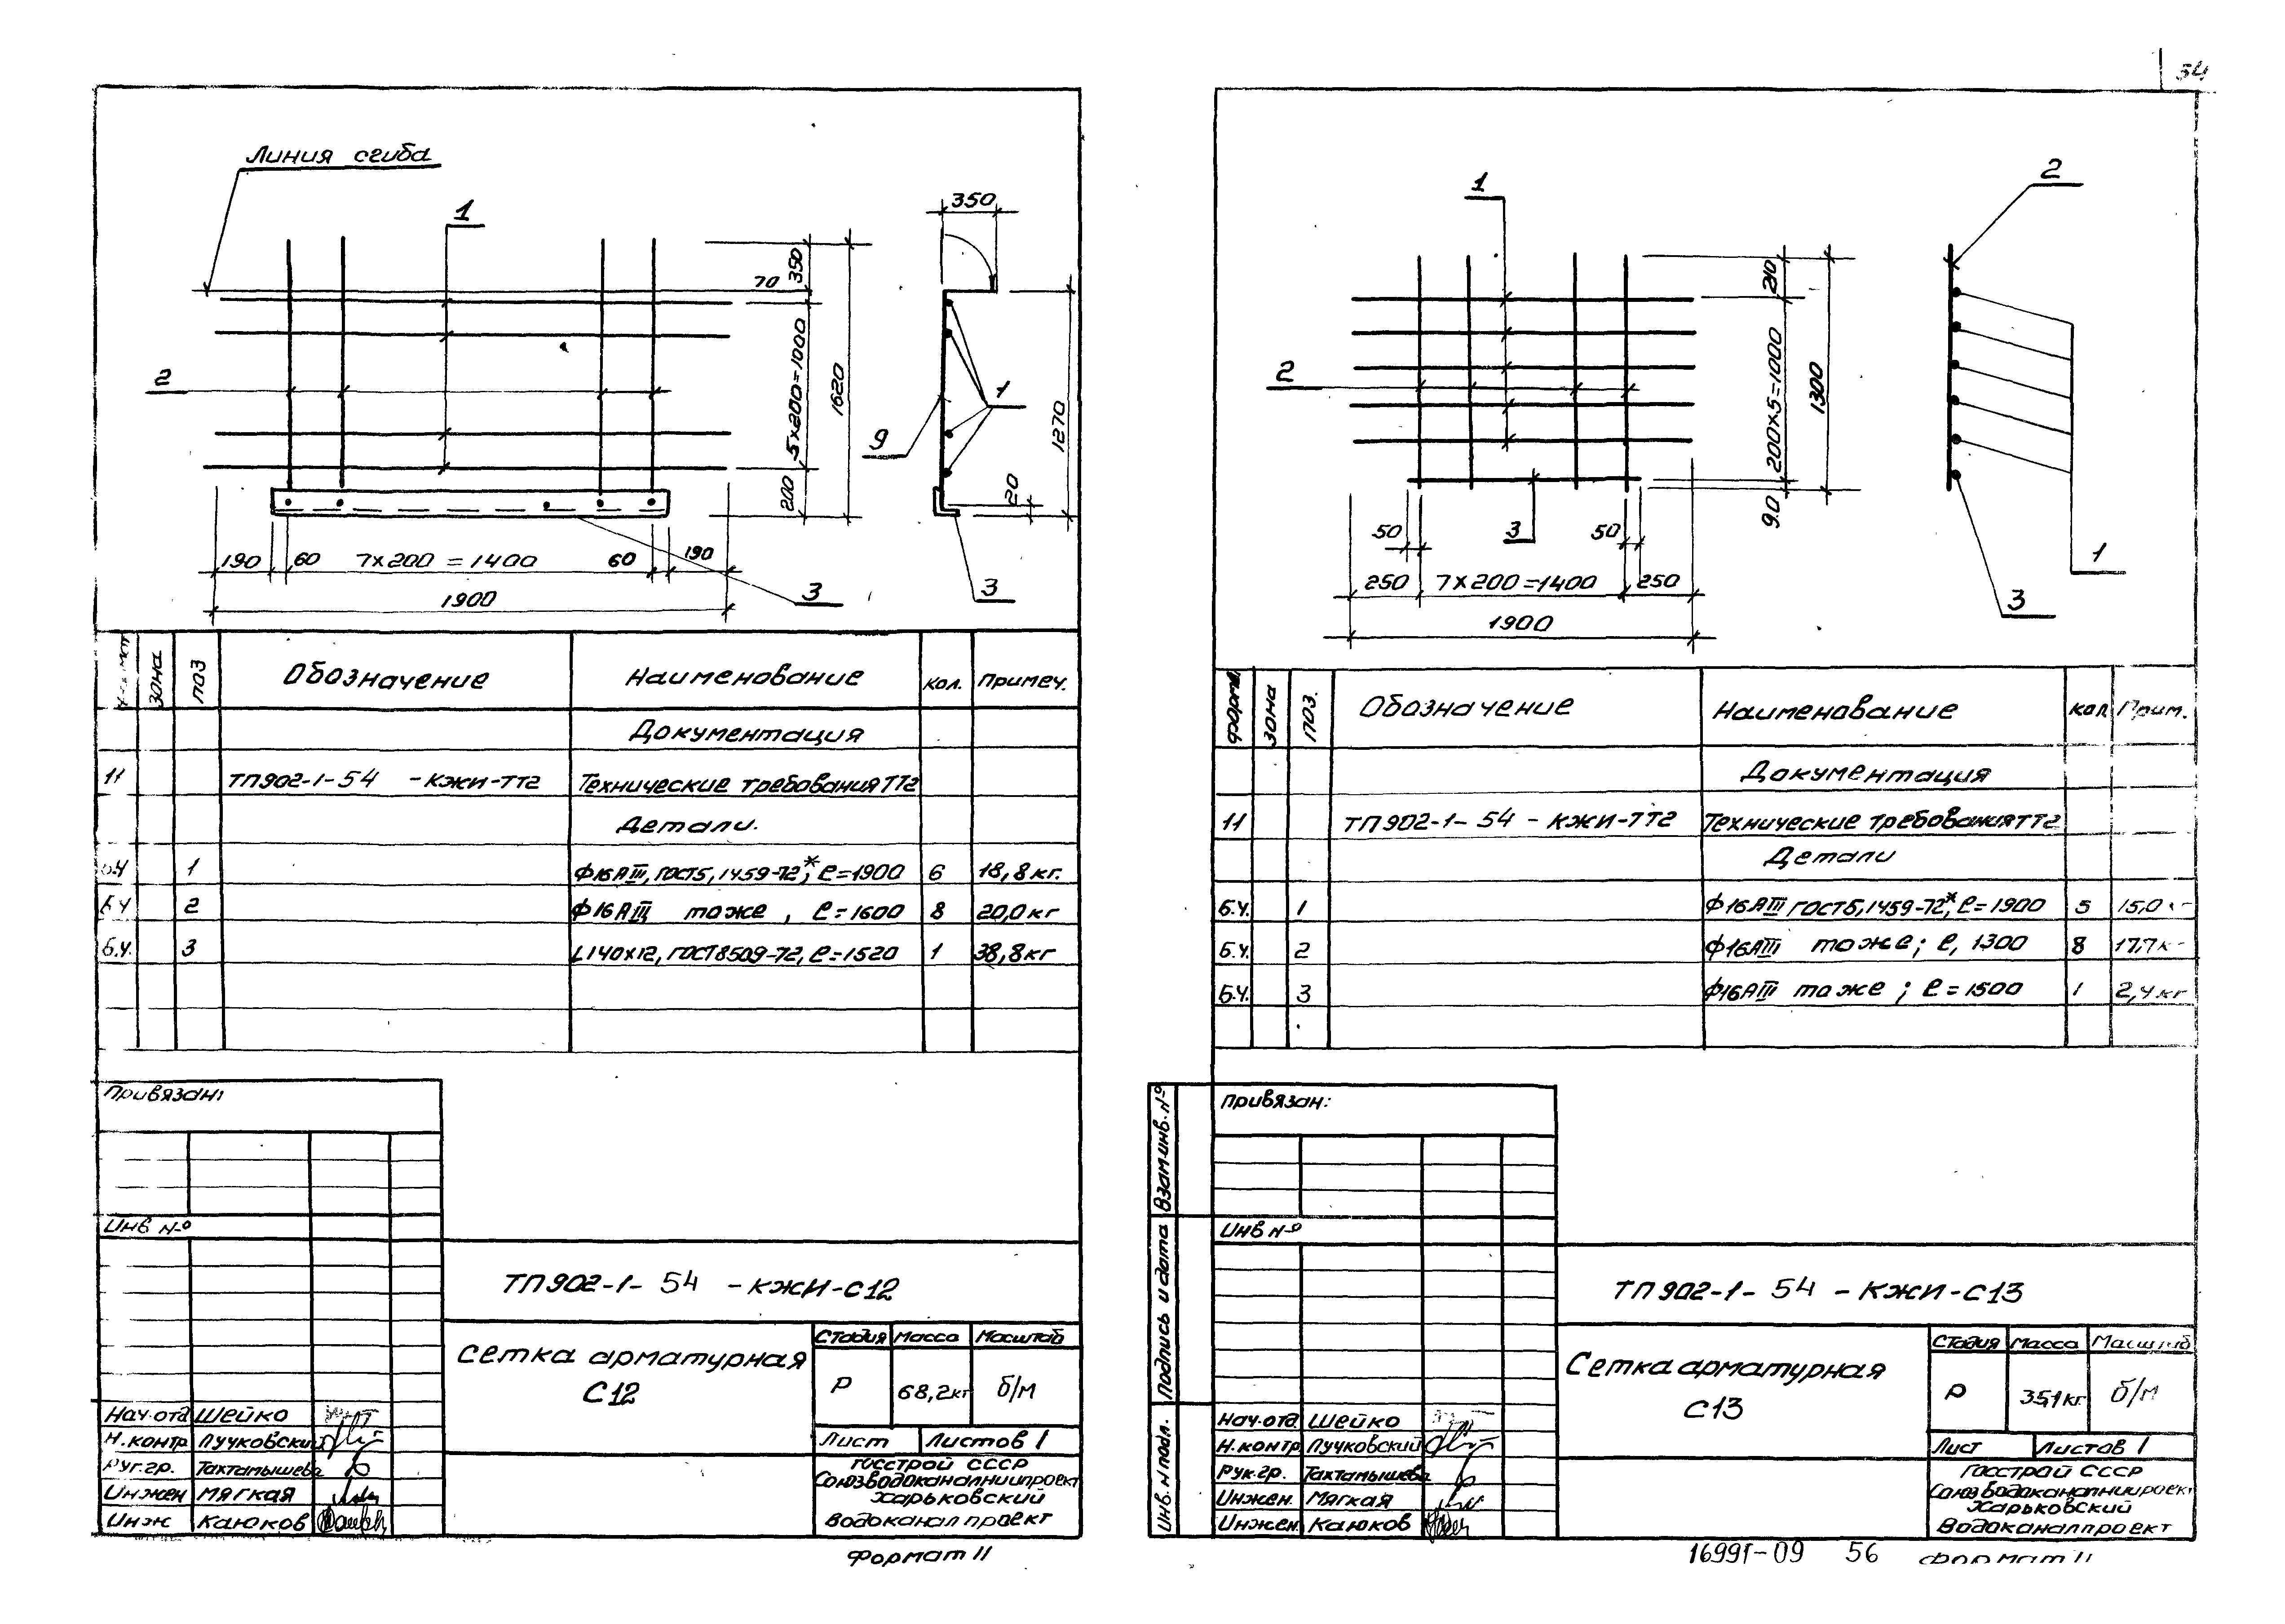 54
Линия сгиба
1
2
350
70
350
5×200=1000
1620
200
9
1
1270
20
3
190 60 7×200=1400 60 190
1900
3
зона
поз
Обозначение Наименование кол. Примеч.
Документация
11 ТП902-1-54 -КЖИ-ТТ2 Технические требования ТТ2
Детали.
б.ч 1 Ф16АIII, ГОСТ5,1459-72*, ℓ=1900 6 18,8кг.
б.ч 2 Ф16АIII тоже, ℓ=1600 8 20,0кг
б.ч. 3 L140х12, ГОСТ8509-72, ℓ=1520 1 38,8кг
Привязан:
Инв №
ТП902-1-54 -КЖИ-С12
Сетка арматурная
С12
Стадия Масса Масштаб
Р 68,2кг б/м
Лист Листов 1
Госстрой СССР
Союзводоканалниипроект
Харьковский
Водоканалпроект
Нач.отд Шейко
Н.контр Лучковский
Рук.гр. Тахтамышева
Инжен Мягкая
Инж Каюков
Формат 11
1
2
2
280
200×5=1000
1300
90
50 3 50
250 7×200=1400 250
1900
1
3
форм.
зона
поз.
Обозначение Наименование кол Прим.
Документация
11 ТП902-1-54 -КЖИ-ТТ2 Технические требования ТТ2
Детали
б.ч. 1 Ф16АIII ГОСТ5,1459-72*, ℓ=1900 5 15,0кг
б.ч. 2 Ф16АIII тоже; ℓ, 1300 8 17,7к
б.ч. 3 Ф16АIII тоже; ℓ=1500 1 2,4кг
Взам.инв.№
Подпись и дата
Инв.Н подл.
Привязан:
Инв №
ТП902-1-54 -КЖИ-С13
Сетка арматурная
С13
Стадия Масса Масштаб
Р 35,1кг б/м
Лист Листов 1
Госстрой СССР
Союзводоканалниипроект
Харьковский
Водоканалпроект
Нач.отд. Шейко
Н.контр Лучковский
Рук.гр. Тахтамышева
Инжен. Мягкая
Инжен. Каюков
16991-09 56 Формат 11